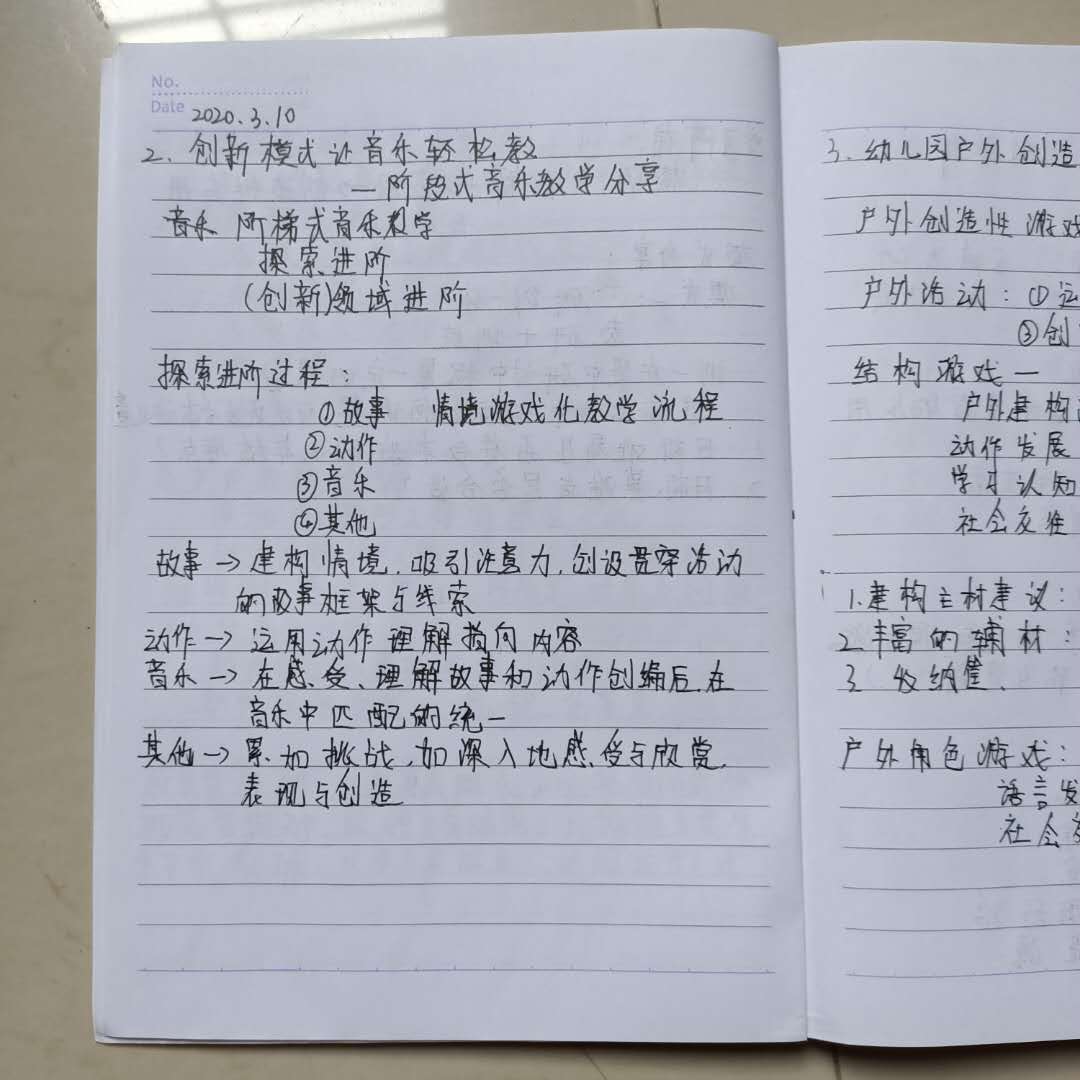 No.
Date 2020.3.10
2. 创新模式让音乐轻松教
—阶段式音乐教学分享
音乐 阶梯式音乐教学
探索进阶
(创新)领域进阶
探索进阶过程:
①故事 情境游戏化教学流程
②动作
③音乐
④其他
故事→建构情境,吸引注意力,创设贯穿活动
的故事框架与线索
动作→运用动作理解指向内容
音乐→在感受、理解故事和动作创编后,在
音乐中匹配的统一
其他→累加挑战,加深入地感受与欣赏,
表现与创造
3. 幼儿园户外创造
户外创造性游戏
户外活动:①运
③创
结构游戏—
户外建构
动作发展
学习认知
社会交往
1.建构主材建议:
2丰富的辅材:
3 收纳筐.
户外角色游戏:
语言发
社会